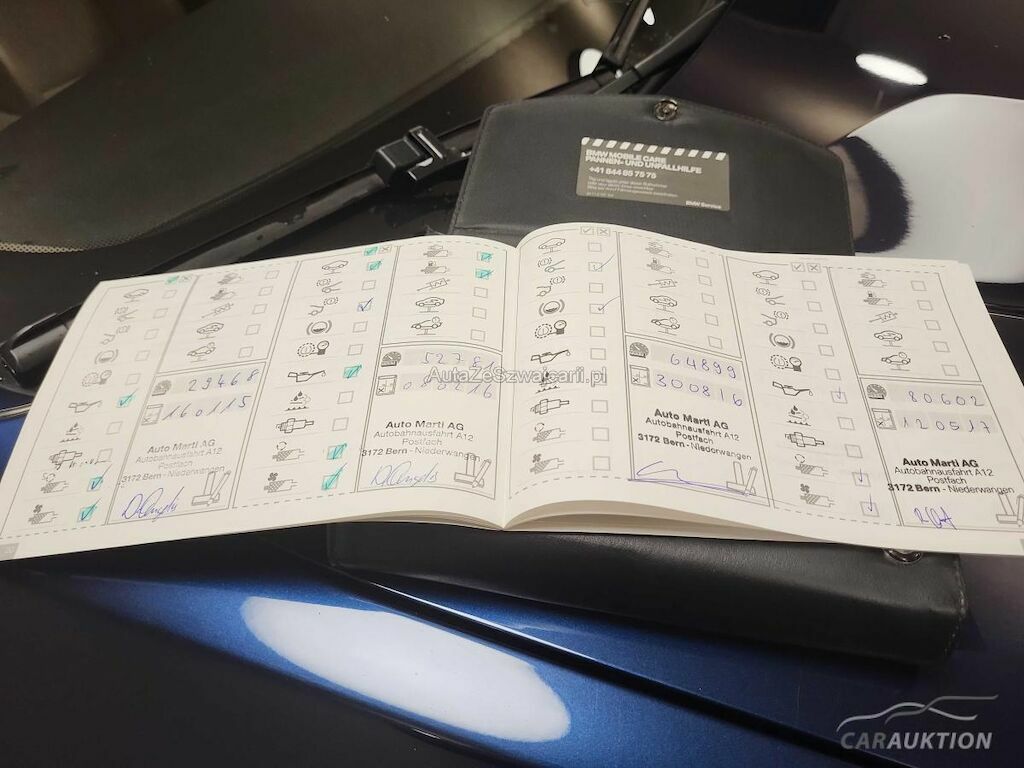 BMW MOBILE CARE
PANNEN- UND UNFALLHILFE
+41 844 85 75 75
BMW Service
29468
160115
Auto Marti AG
Autobahnausfahrt A12
Postfach
3172 Bern - Niederwangen
5278
0216
Auto Marti AG
Autobahnausfahrt A12
Postfach
3172 Bern - Niederwangen
64899
300816
Auto Marti AG
Autobahnausfahrt A12
Postfach
3172 Bern - Niederwangen
80602
120517
Auto Marti AG
Autobahnausfahrt A12
Postfach
3172 Bern - Niederwangen
AutaZeSzwajcarii.pl
CARAUKTION